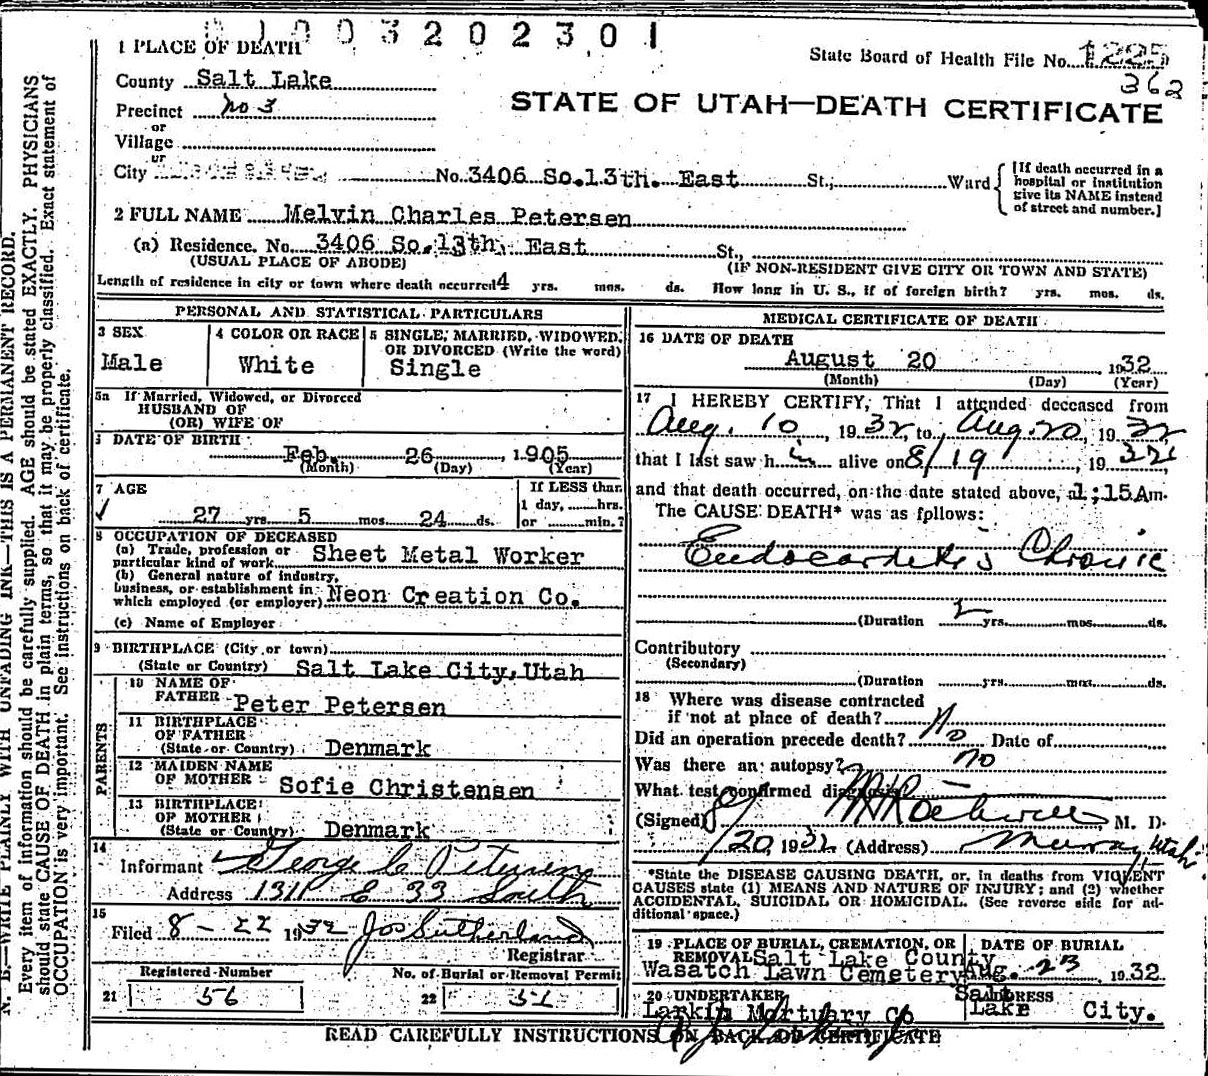 1003202301
1 PLACE OF DEATH
State Board of Health File No. 1225
362
County Salt Lake
STATE OF UTAH—DEATH CERTIFICATE
Precinct no 3
or
Village
or
City No. 3406 So. 13th. East St., Ward
[If death occurred in a hospital or institution give its NAME instead of street and number.]
2 FULL NAME Melvin Charles Petersen
(a) Residence. No. 3406 So. 13th. East St.,
(USUAL PLACE OF ABODE) (IF NON-RESIDENT GIVE CITY OR TOWN AND STATE)
Length of residence in city or town where death occurred 4 yrs. mos. ds. How long in U. S., if of foreign birth? yrs. mos. ds.
PERSONAL AND STATISTICAL PARTICULARS
3 SEX
Male
4 COLOR OR RACE
White
5 SINGLE, MARRIED, WIDOWED, OR DIVORCED (Write the word)
Single
5a If Married, Widowed, or Divorced
HUSBAND OF
(OR) WIFE OF
6 DATE OF BIRTH
Feb. 26, 1905
(Month) (Day) (Year)
7 AGE
27 yrs. 5 mos. 24 ds.
If LESS than
1 day, hrs.
or min.?
8 OCCUPATION OF DECEASED
(a) Trade, profession or
particular kind of work Sheet Metal Worker
(b) General nature of industry,
business, or establishment in
which employed (or employer) Neon Creation Co.
(c) Name of Employer
9 BIRTHPLACE (City or town)
(State or Country) Salt Lake City, Utah
PARENTS
10 NAME OF
FATHER Peter Petersen
11 BIRTHPLACE
OF FATHER
(State or Country) Denmark
12 MAIDEN NAME
OF MOTHER Sofie Christensen
13 BIRTHPLACE
OF MOTHER
(State or Country) Denmark
14
Informant George C Petersen
Address 1311 E 33 South
15
Filed 8-22 1932 Jos Sutherland
Registrar
Registered Number
21 56
No. of Burial or Removal Permit
22
MEDICAL CERTIFICATE OF DEATH
16 DATE OF DEATH
August 20 1932
(Month) (Day) (Year)
17 I HEREBY CERTIFY, That I attended deceased from
Aug. 10, 1932, to Aug. 20, 1932
that I last saw h im alive on 8/19, 1932,
and that death occurred, on the date stated above, at 1;15 Am.
The CAUSE DEATH* was as follows:
Endocarditis Chronic
(Duration 2 yrs. mos. ds.
Contributory
(Secondary)
(Duration yrs. mos. ds.
18 Where was disease contracted
if not at place of death? No
Did an operation precede death? Date of
Was there an autopsy? no
What test confirmed diagnosis
(Signed) M. D.
/20, 1932 (Address) Murray Utah
*State the DISEASE CAUSING DEATH, or, in deaths from VIOLENT
CAUSES state (1) MEANS AND NATURE OF INJURY; and (2) whether
ACCIDENTAL, SUICIDAL OR HOMICIDAL. (See reverse side for ad-
ditional space.)
19 PLACE OF BURIAL, CREMATION, OR
REMOVAL Salt Lake County
Wasatch Lawn Cemetery
DATE OF BURIAL
Aug. 23 1932
20 UNDERTAKER
Larkin Mortuary Co
ADDRESS
Salt
Lake City.
READ CAREFULLY INSTRUCTIONS ON BACK OF CERTIFICATE
N. B.—WRITE PLAINLY WITH UNFADING INK—THIS IS A PERMANENT RECORD.
Every item of information should be carefully supplied. AGE should be stated EXACTLY. PHYSICIANS
should state CAUSE OF DEATH in plain terms, so that it may be properly classified. Exact statement of
OCCUPATION is very important. See instructions on back of certificate.